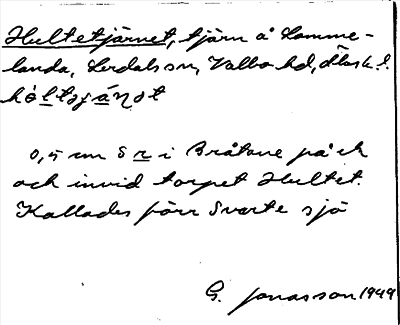 Hultetjärnet, tjärn å Lomme-
landa, Lerdals sn, Valbo hd, Dalsl.
hó̤ltəʃä́ṇət
0,5 cm S r i Bråtane på ek
och invid torpet Hultet.
Kallades förr Svarte sjö
G. Jonasson 1949